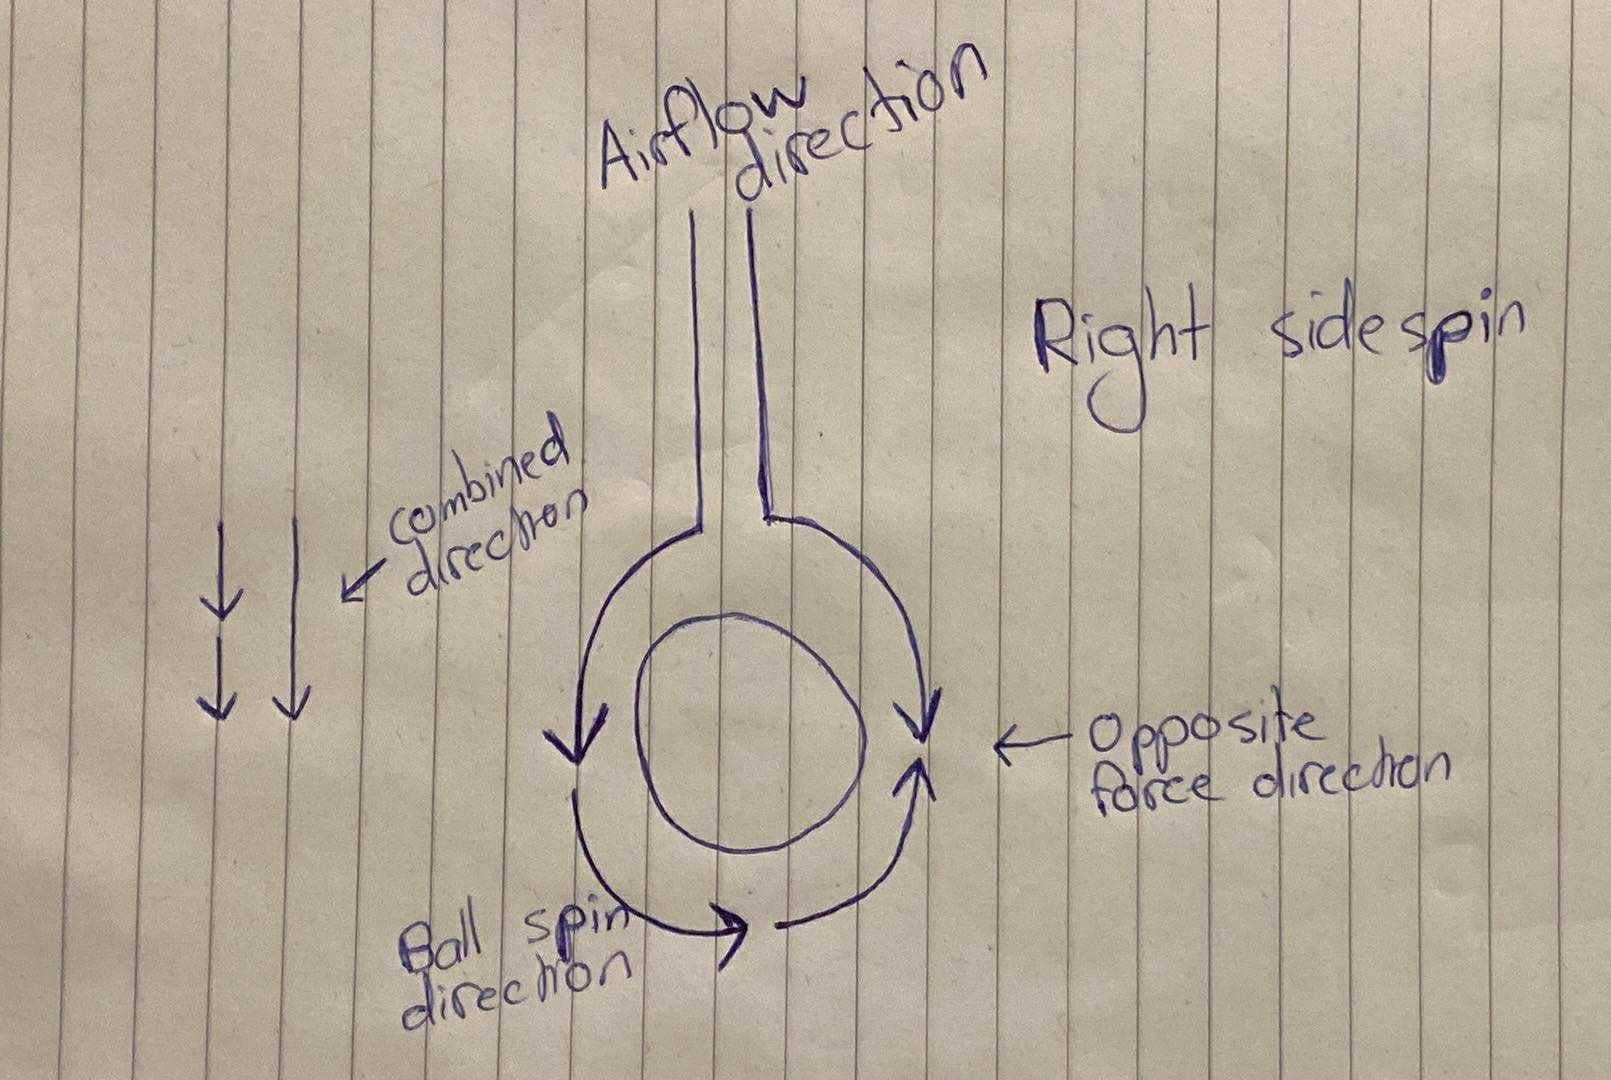 Airflow
direction
Right sidespin
combined
direction
Opposite
force direction
Ball spin
direction